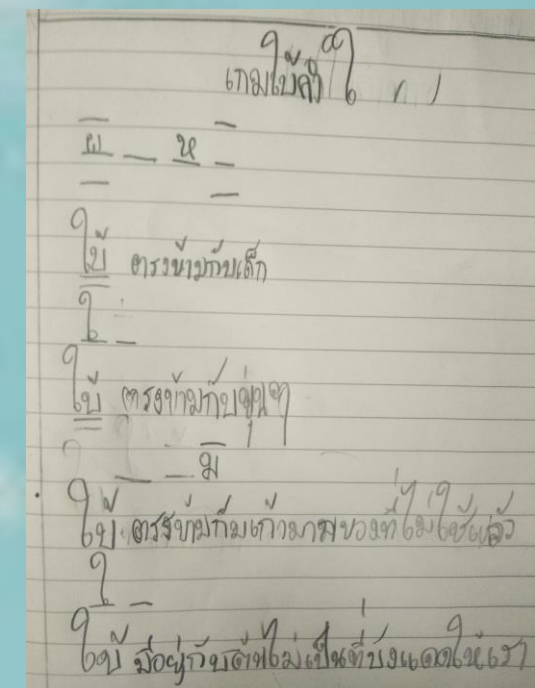 เกมใบ้คำ ใ
ผ _ ห _
ใบ้ ตรงข้ามกับเด็ก
ใ _
ใบ้ ตรงข้ามกับขุ่นๆ
_ _ มี
ใบ้ ตรงข้ามกับเก้ามาของที่ไม่ใช้แล้ว
ใ _
ใบ้ มีอยู่กับต้นไม่เป็นที่บังแดดให้เรา